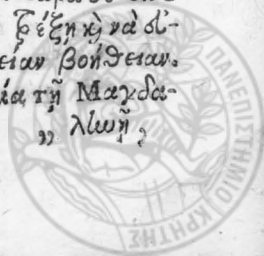 τρέξῃ καὶ νὰ δί-
είαν βοήθειαν.
ία τῇ Μαγδα-
„ λωῇ,
ΠΑΝΕΠΙΣΤΗΜΙΟ ΚΡΗΤΗΣ